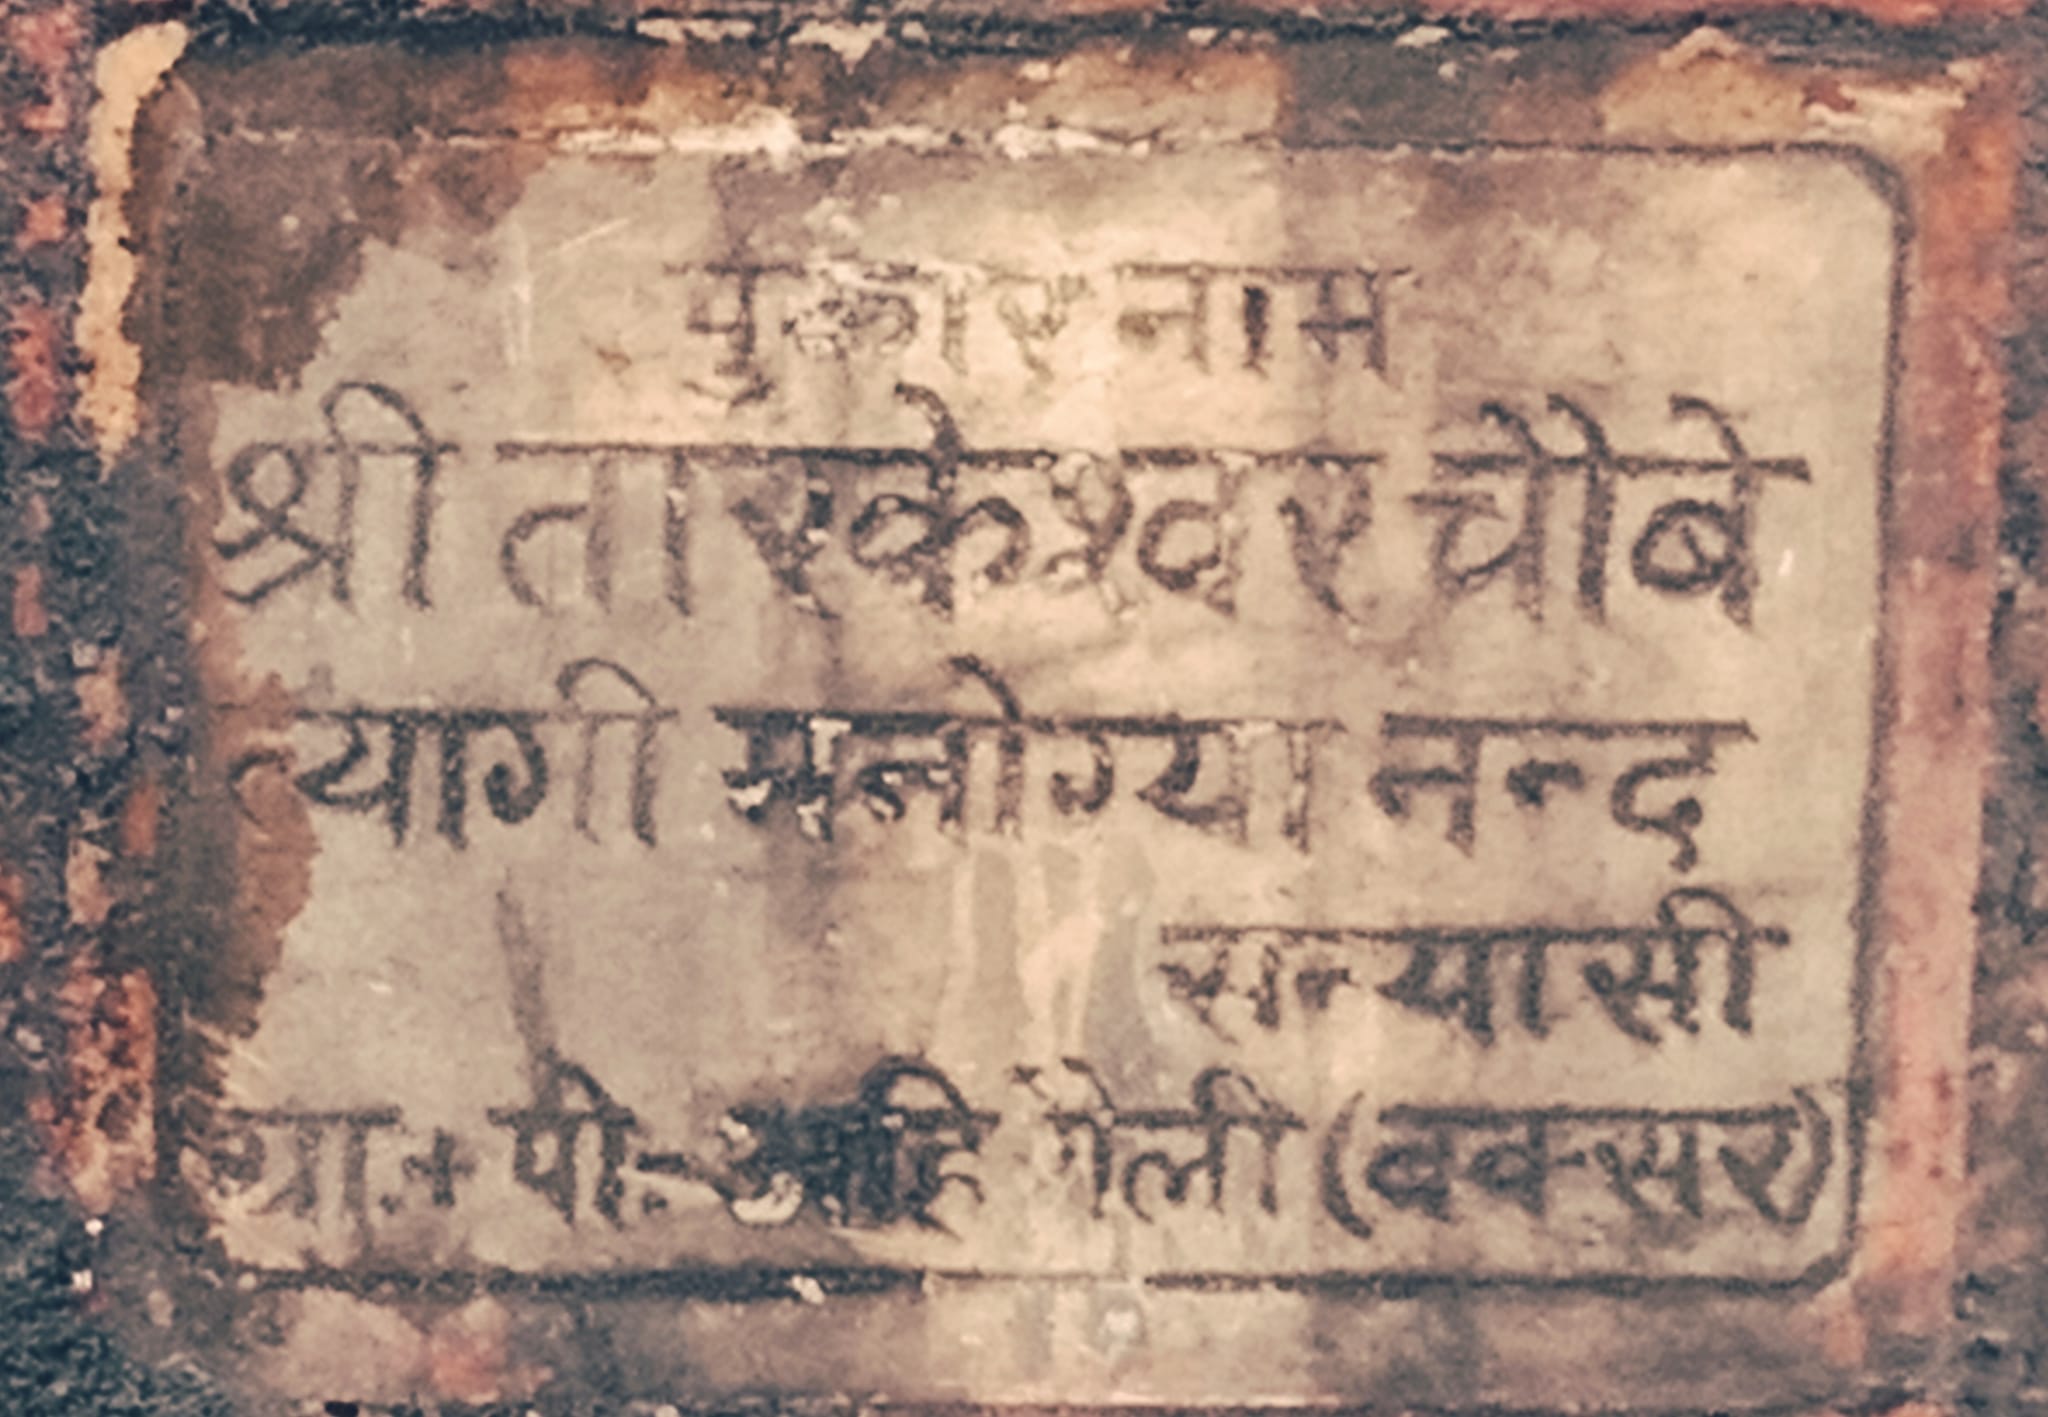 पुकार नाम
श्री तारकेश्वर चौबे
त्यागी मनोग्या नन्द
सन्यासी
ग्रा.+ पो.- अहिरौली (बक्सर)